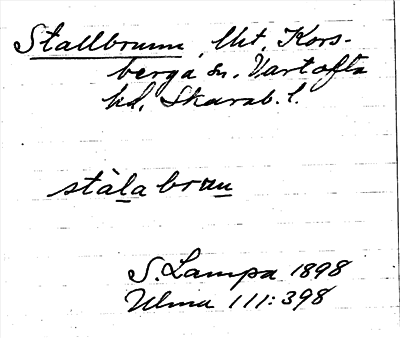 Stallbrunn, lht, Kors-
berga sn, Vartofta
hd, Skarab. l.
stàlabrαu
S. Lampa 1898
Ulma 111:398